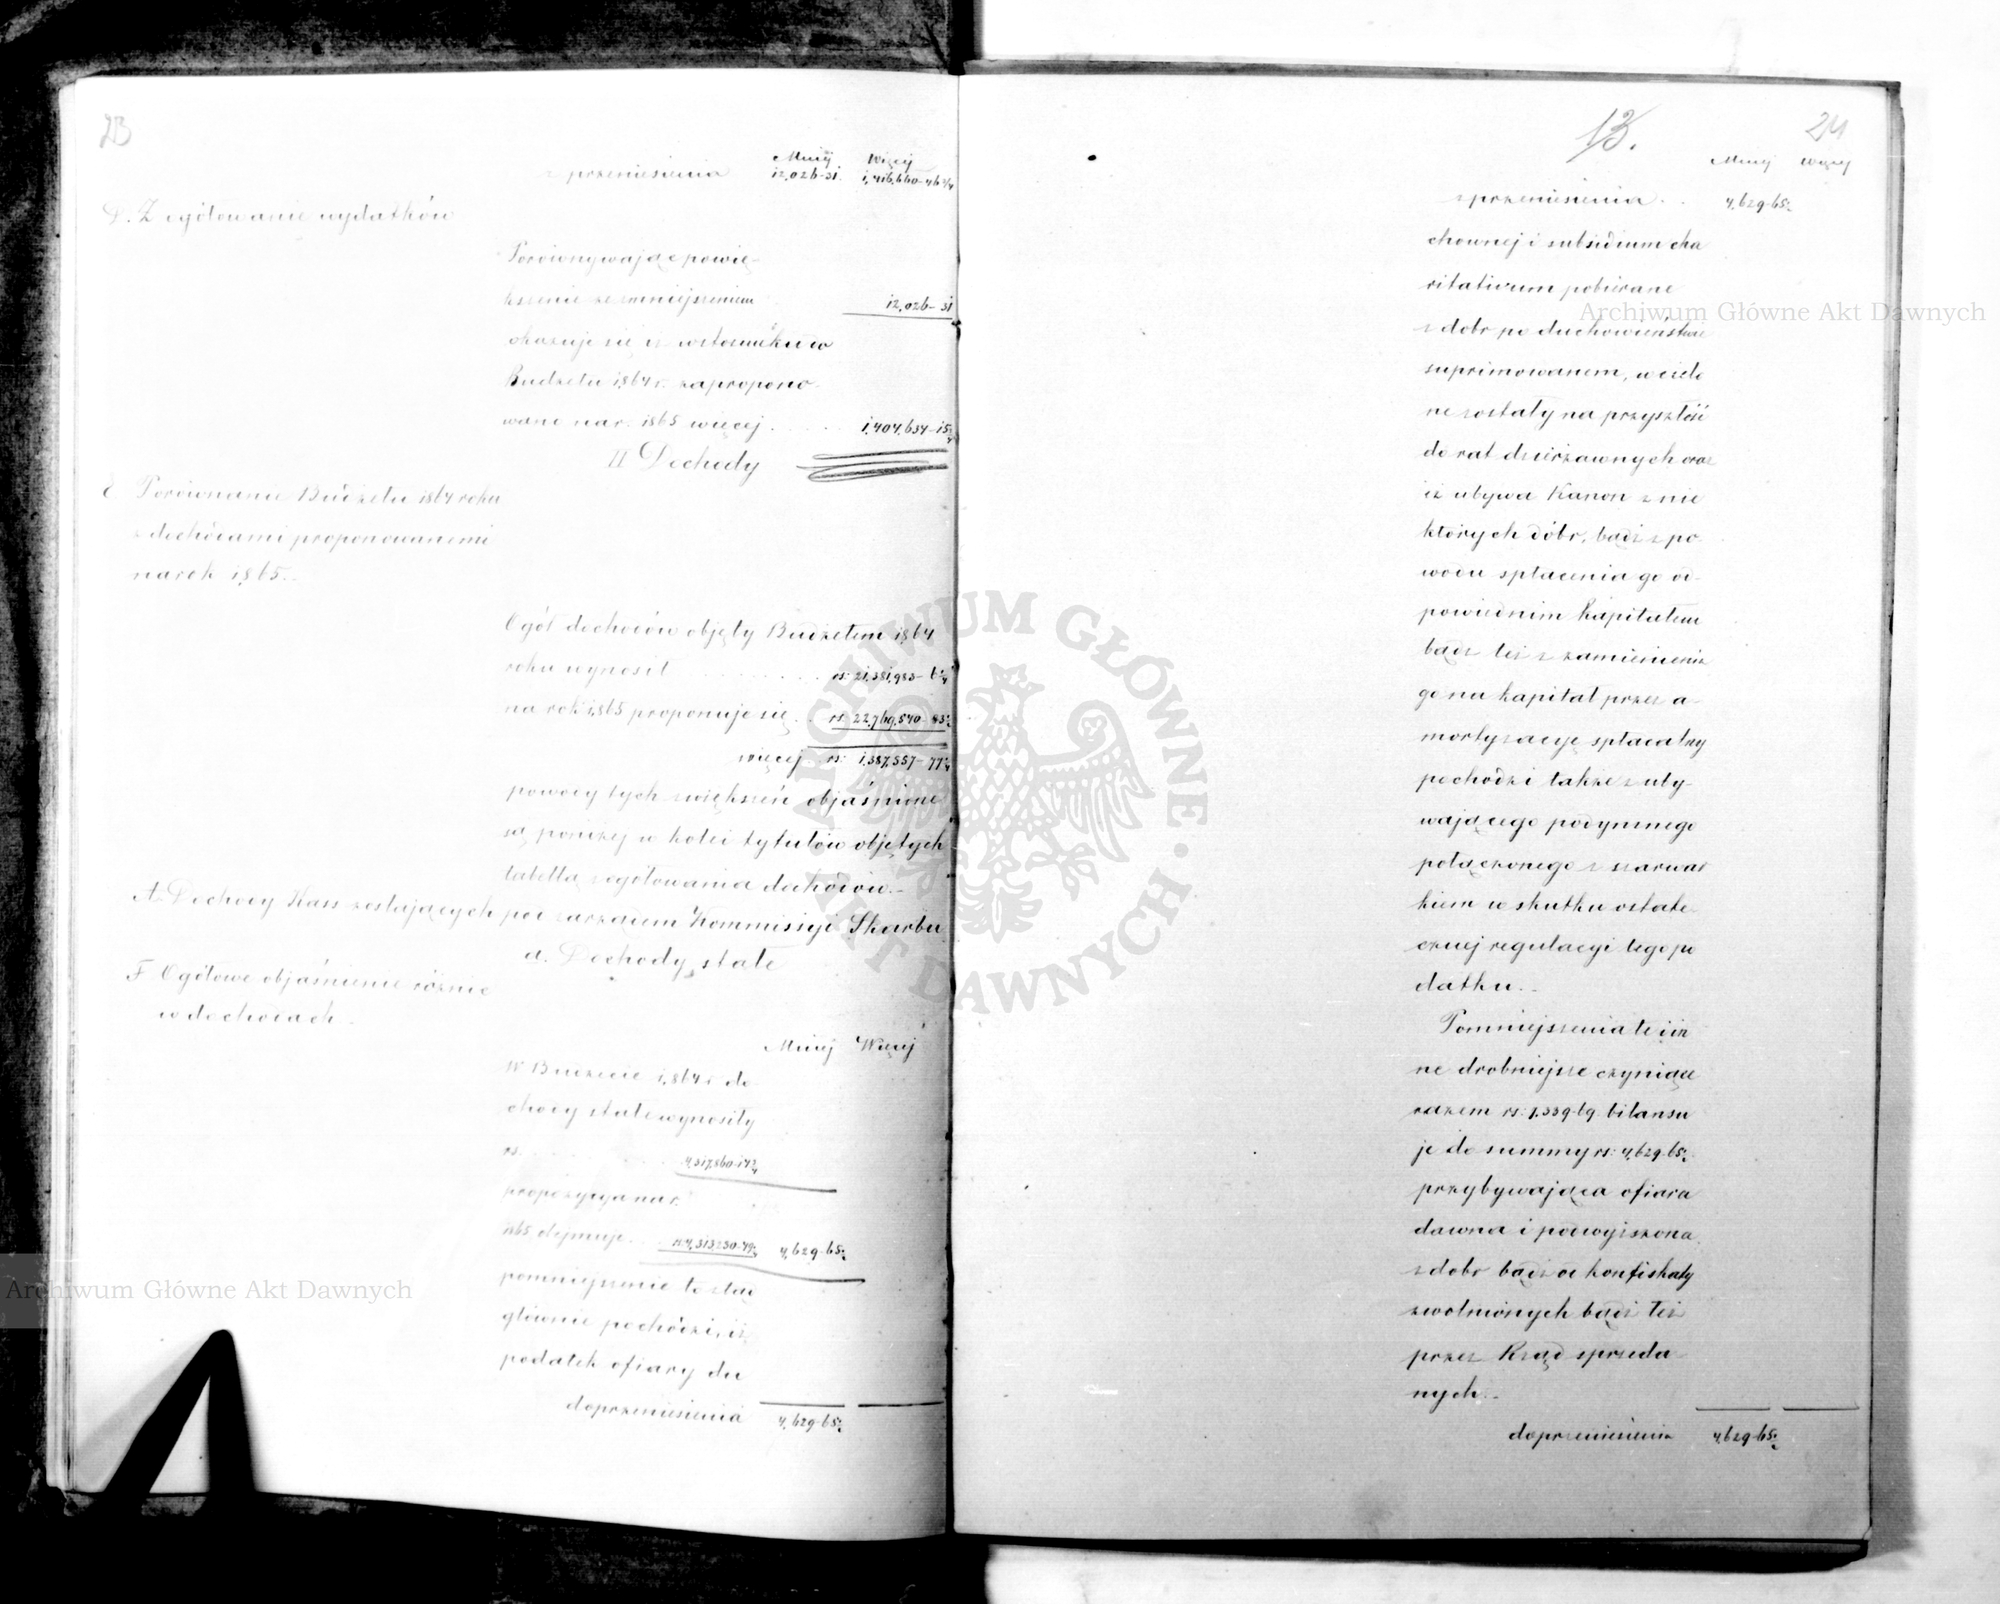 23
Mniéj Więcéj
z przeniesienia 12,026-31. 1,416,660-46 3/4
D. Zogółowanie wydatków
Porównywając powię-
kszenie ze zmniejszeniem 12,026-31
okazuje się iż w stosunku do
Budżetu 1864 r. zapropono-
wano na r. 1865 więcej . . . . 1,404,634-15 3/4
II Dochody
E. Porównanie Budżetu 1864 roku
z dochodami proponowanemi
na rok 1865.
Ogół dochodów objęty Budżetem 1864
roku wynosił . . . . . . rs: 21,381,983-
na rok 1865 proponuje się . . rs: 22,769,540-
więcej . rs: 1,387,557-77
powody tych zwiększeń objaśnione
są poniżej w kolei tytułów objętych
tabellą zogółowania dochodów.-
A. Dochody Kass zostających pod zarządem Kommissyi Skarbu
a. Dochody stałe
F. Ogółowe objaśnienie różnic
w dochodach.
Mniéj Więcéj
W Budżecie 1,864 r. do
chody stałe wynosiły
rs. . . . . 4,317,860-14
propozycya na r.
1865 obejmuje . . rs. 4,313,230-49 4,629-65
pomniejszenie to ztąd
głównie pochodzi, iż
podatek ofiary du
do przeniesienia 4,629-65
13. 24
Mniéj Więcéj
z przeniesienia . . 4,629-65
chownej i subsidium cha
ritativum pobierane
z dóbr po duchowieństwie
suprimowanem, wcielo
ne zostały na przyszłość
do rat dzierżawnych oraz
iż ubywa Kanon z nie
których dóbr, bądź z po-
wodu spłacenia go od-
powiednim kapitałem
bądź też z zamienienia
go na kapitał przez a-
mortyzacyę spłacalny
pochodzi także z uby-
wającego podymnego
połączonego z szarwar
kiem w skutku ostate-
cznej regulacyi tego po
datku.-
Pomniejszenia te i in
ne drobniejsze czyniące
razem rs: 7,339-69 bilansu
je do summy rs: 4,629-65
przybywająca ofiara
dawna i podwyższona
z dóbr bądź od konfiskaty
zwolnionych bądź też
przez Rząd sprzeda-
nych.-
do przeniesienia 4,629-65
Archiwum Główne Akt Dawnych
Archiwum Główne Akt Dawnych
ARCHIWUM GŁÓWNE · AKT DAWNYCH ·